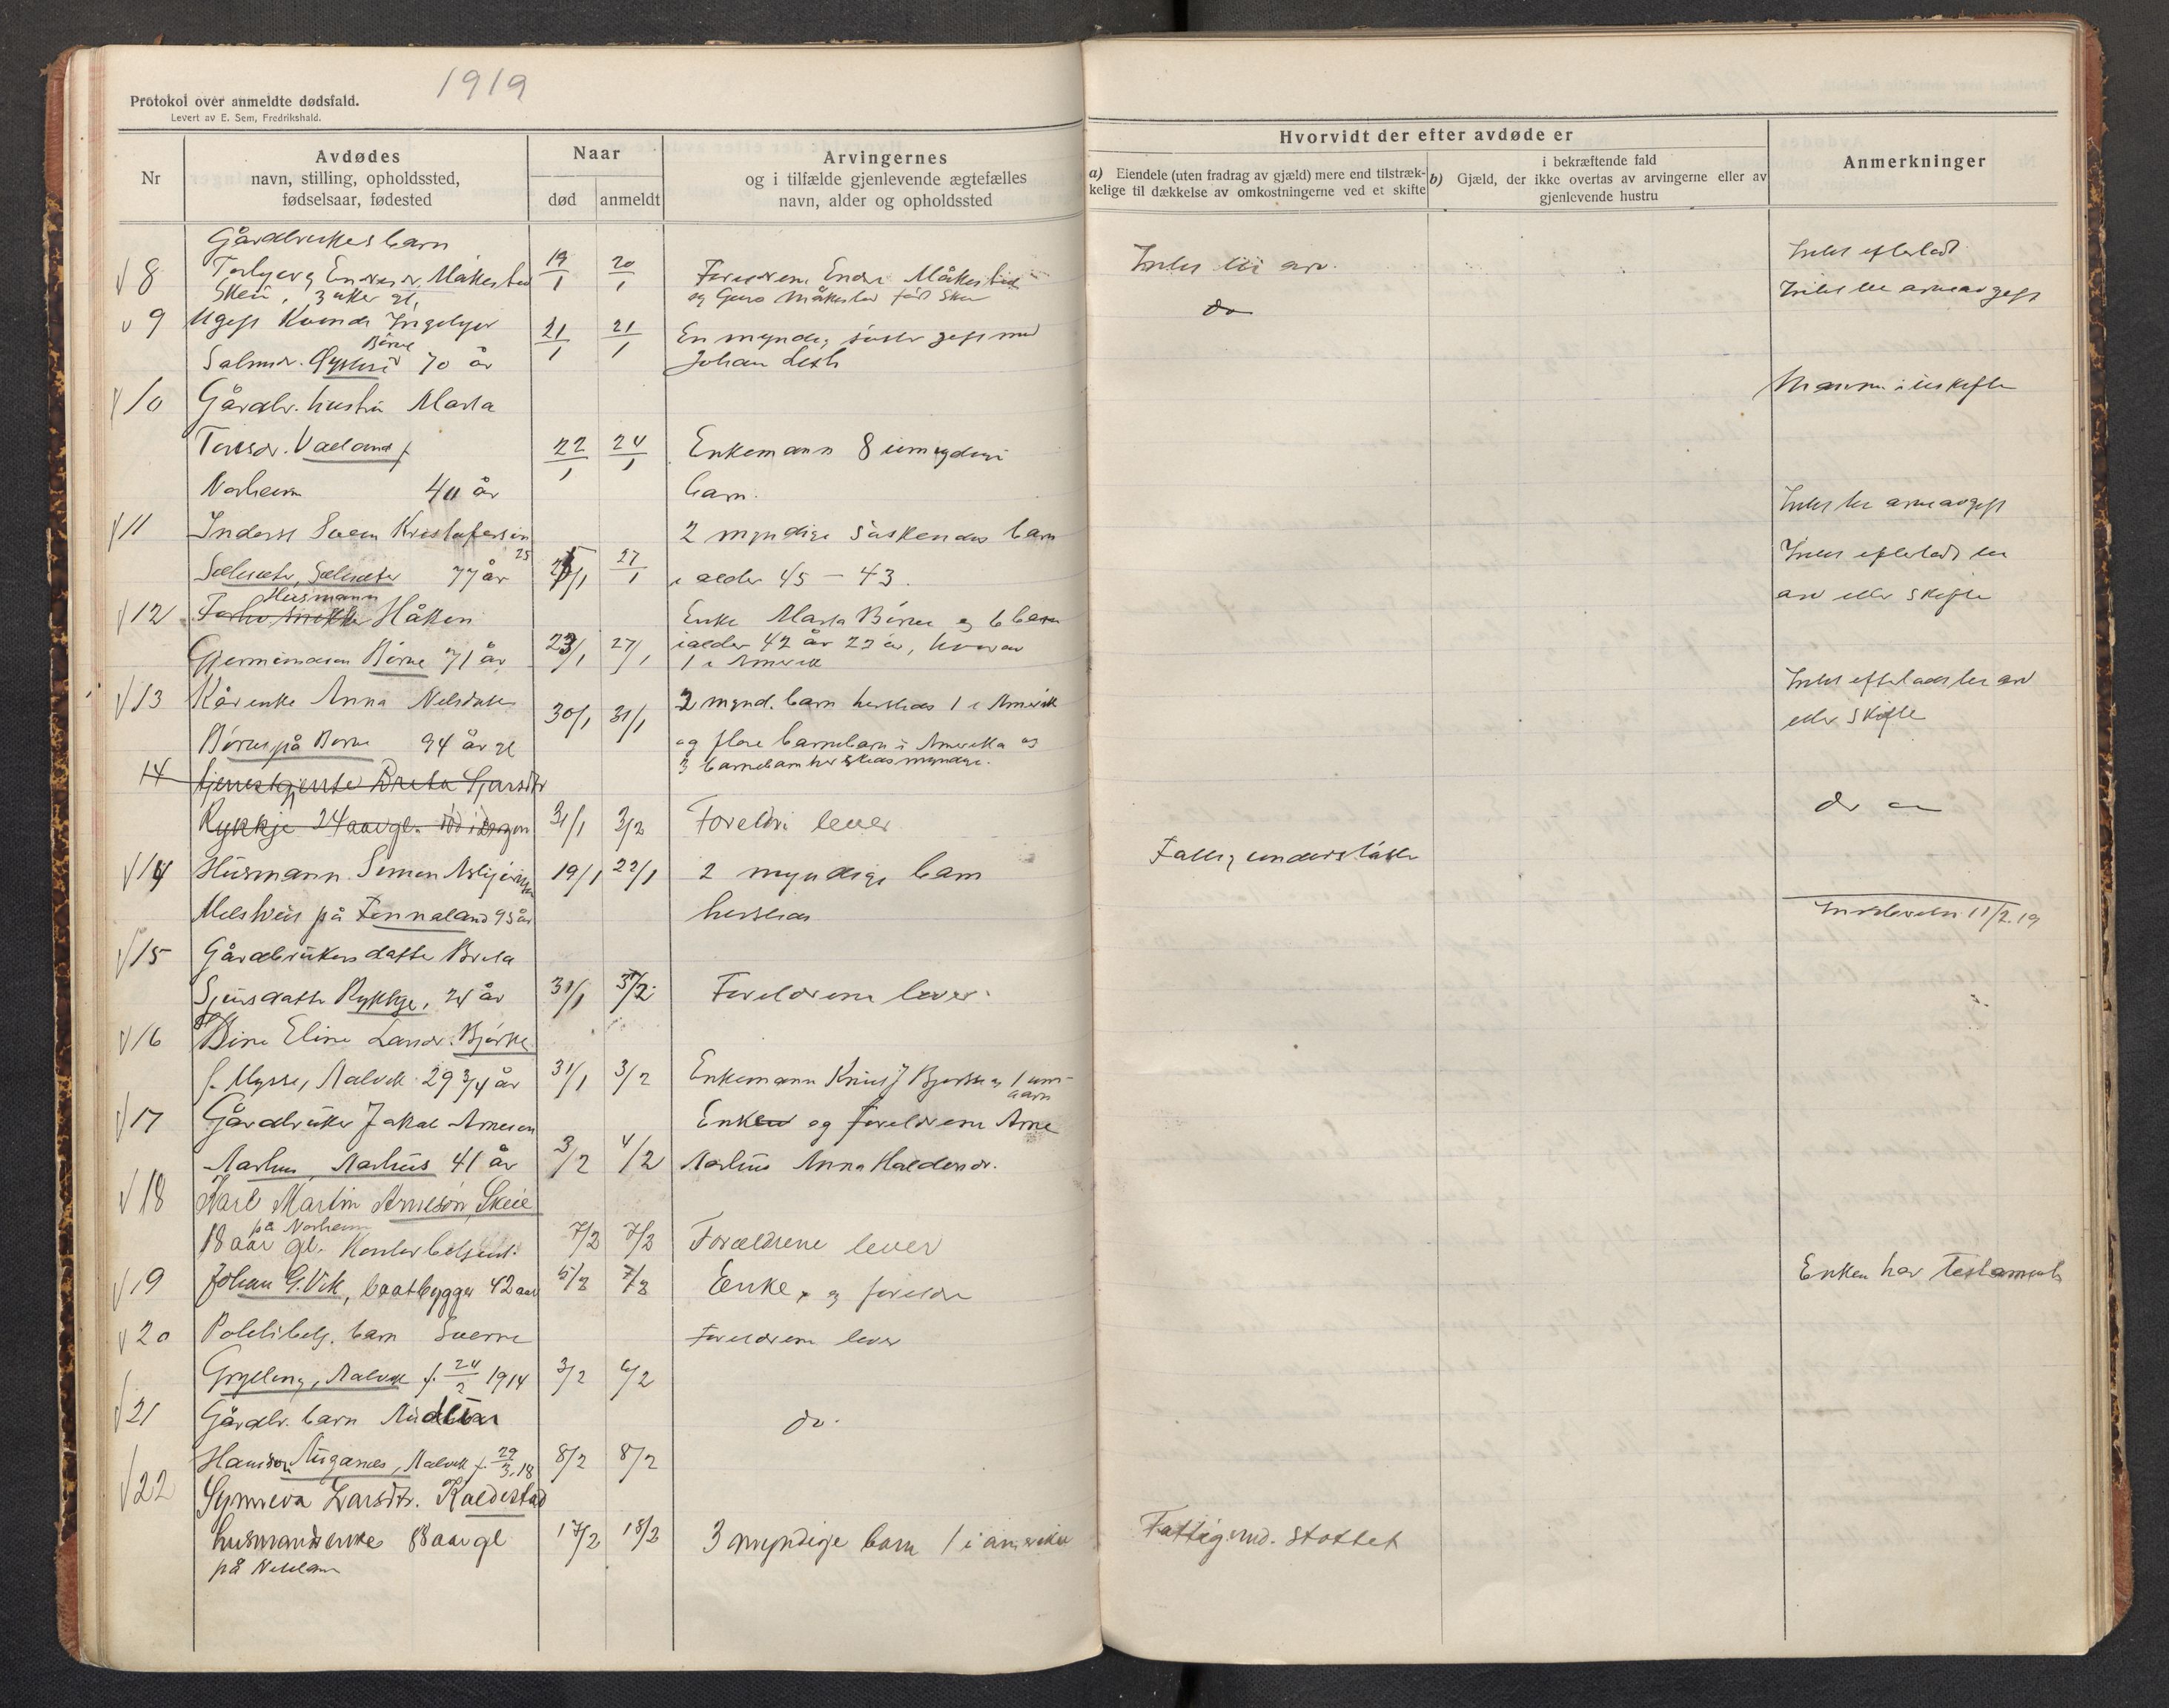 1919
Protokol over anmeldte dødsfald.
Levert av E. Sem, Fredrikshald.
Nr
Avdødes
navn, stilling, opholdssted,
fødselsaar, fødested
Naar
død
anmeldt
Arvingernes
og i tilfælde gjenlevende ægtefælles
navn, alder og opholdssted
Hvorvidt der efter avdøde er
a) Eiendele (uten fradrag av gjæld) mere end tilstræk-
kelige til dækkelse av omkostningerne ved et skifte
i bekræftende fald
b) Gjæld, der ikke overtas av arvingerne eller av
gjenlevende hustru
Anmerkninger
Gårdbrukers barn
8 Torbjørg Endresdr. Måkestad 19/1 20/1 Foreldrene Endre Måkestad
Skeie, 3 uker gl. og Guro Måkestad født Skeie
Intet til arv.
Intet efterladt
9 Ugift Kvinde Ingebjør 21/1 21/1 En myndig søster gift med
Børve
Salmdr. 70 år Johan
do
Intet til arveavgift
10 Gårdbr. hustru Marta
Toresdr. Vaeland f. 22/1 24/1 Enkemann 8 umyndige
Norheim 40 år barn.
Mannen i uskifte
11 Inderst Svein Kristofersen 2 myndige søskendes barn
25
Sælesæter, Sælesæter 77 år 27/1 i alder 45 – 43.
Intet til arveavgift
Husmann
12 Håkon Enke Marta Børve og 6 barn
Gjermundsen Børve 71 år 23/1 27/1 i alder 42 år 22 år, hvorav
1 i Amerik
Intet efterladt til
arv eller skifte
13 Kårenke Anna Nelsdatter 30/1 31/1 2 mynd. barn herstedes 1 i Amerik
Børve på Børve 94 år gl og flere barnebarn i Amerika og
3 barnebarn herstedes myndige.
Intet efterladt til arv
eller skifte
14 tjenestgjente Breta Sjursdtr
Rykkje 24 aar gl. 31/1 3/2 Foreldri lever
do
14 Husmann Simon Asbjørnsen 19/1 22/1 2 myndige barn
på Tennaland 93 år herstedes
Fattig understøttet
15 Gårdbrukers datter Breta
Sjursdatter Rykkje, 24 år 31/1 3/2 Foreldrene lever.
Innbereter 11/2.19
16 Eline Larsdr. Bjørke
f. Mysse, Aalvik 29 3/4 år 31/1 3/2 Enkemann Knut J Bjørke og 1 um-
barn
17 Gårdbruker Jakob Arnesen Enken og foreldrene Arne
Aarhus, Aarhus 41 år 3/2 4/2 Aarhus Anna Haldorsdr.
18 Karl Martin Arneson Skeie
på Norheim
18 aar gl. Kontorbetjent. 7/2 7/2 Forældrene lever
19 Johan G. Vik, baatbygger 42 aar 5/2 7/2 Enke, og foreldre
Enken har testamente
20 Politibetj. barn Sverre Foreldrene lever
Grytting, Aalvik f. 24/2 1914 3/2 6/2
21 Gårdbr. barn do.
Hansson Auganes, Aalvik f. 29/3.18 8/2 8/2
22 Synneva Larsdtr. Kaldestad
husmandsenke 88 aar gl 17/2 18/2 3 myndige barn 1 i amerika
på
Fattig und. støttet